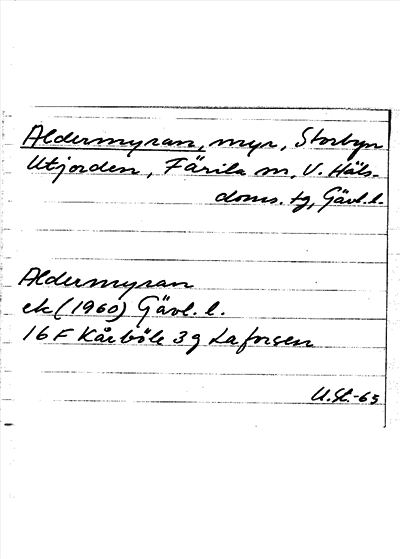 Aldermyran, myr, Storbyn
Utjorden, Färila sn, V. Häls.
doms. tg, Gävl. l.
Aldermyran
ek (1960) Gävl. l.
16 F Kårböle 3 g Laforsen
U.St.-65